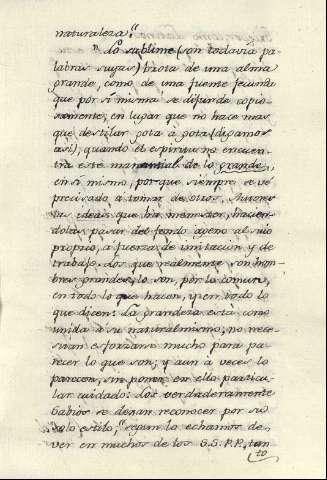 naturaleza."
" Lo sublime (son todavia pa-
labras suyas) brota de una alma
grande, como de una fuente fecunda
que por si misma se difunde copio-
samente, en lugar que no hace mas
que destilar gota à gota (digamos
asi), quando el espiritu no encuen-
tra este manantial de lo grande,
en si mismo, porque siempre se vé
precisado a tomar de otros
ideas que ha menester, hacien-
dolas pasar del fondo ageno al suio
proprio, à fuerza de imitacion y de
trabajo. Los que realmente son hom-
bres grandes, lo son, por lo comun,
en todo lo que hacen, y en todo lo
que dicen: La grandeza está como
unida à su naturalmismo, no nece-
sitan esforzarse mucho para pa-
recer lo que son; y aun à veces lo
parecen, sin poner en ello particu-
lar cuidado. Los verdaderamente
sabios se dexan reconocer por su
solo estilo," segun lo echamos de
ver en muchos de los S.S. P.P., tan
to